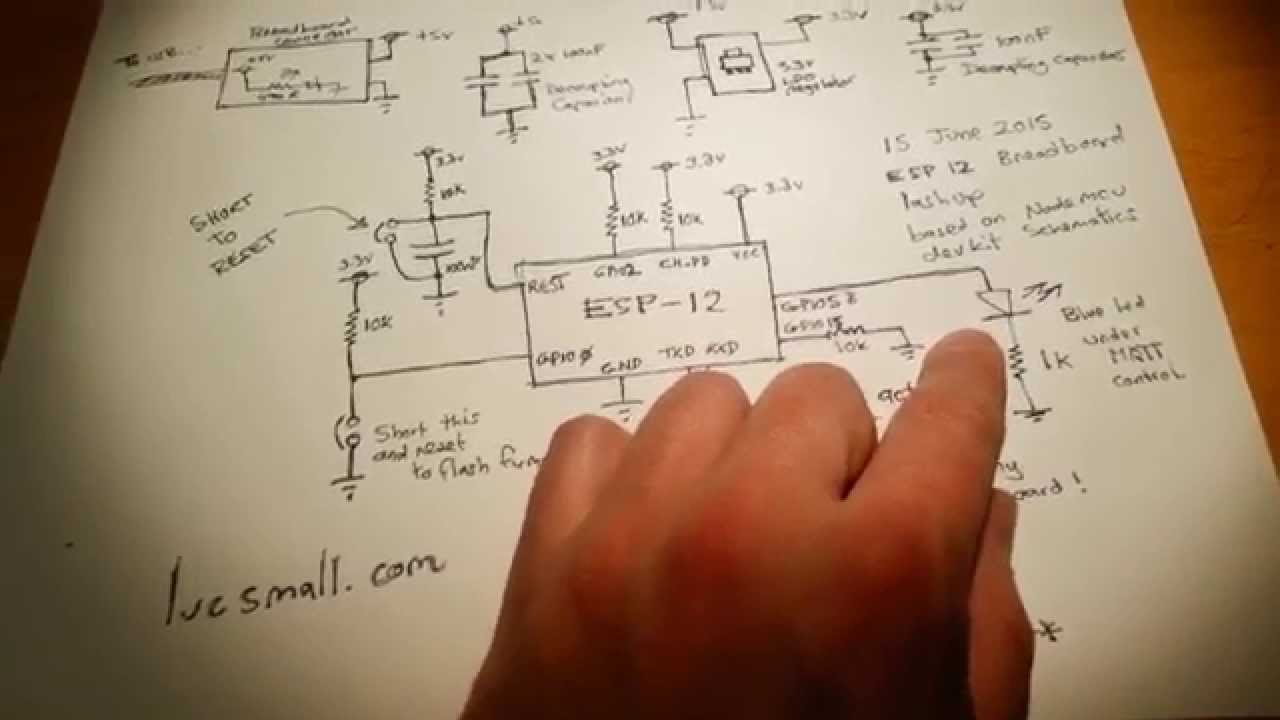 Breadboard
connector
+5V
+5
2x 100nF
Decoupling
Capacitors
3.3V
3.3V
LDO
regulator
100nF
Decoupling Capacitors
15 June 2015
ESP 12 Breadboard
lashup
based on Nodemcu
devkit Schematics
SHORT
TO
RESET
3.3V
10K
100nF
3.3V
10K
3.3V
10K
3.3V
3.3V
10K
REST
GPIO2
CH-PD
VCC
ESP-12
GPIO
GPIO15
10K
GPIO0
GND
TXD
RXD
Blue led
under
MQTT
control
1K
Short this
and reset
to flash
lucsmall.com